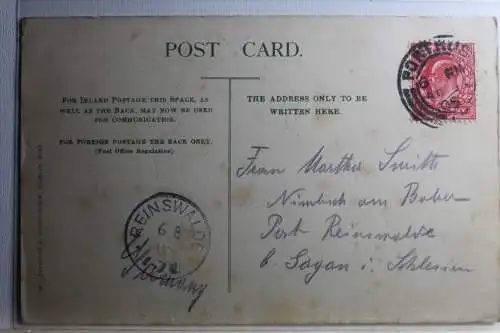 POST CARD.
FOR INLAND POSTAGE THIS SPACE, AS
WELL AS THE BACK, MAY NOW BE USED
FOR COMMUNICATION.
FOR FOREIGN POSTAGE THE BACK ONLY.
(Post Office Regulation)
THE ADDRESS ONLY TO BE
WRITTEN HERE.
Frau Martha Smith
Nimbsch am Bober
Post Reinswalde
b. Sagan i. Schlesien
REINSWALDE
6 8
Germany